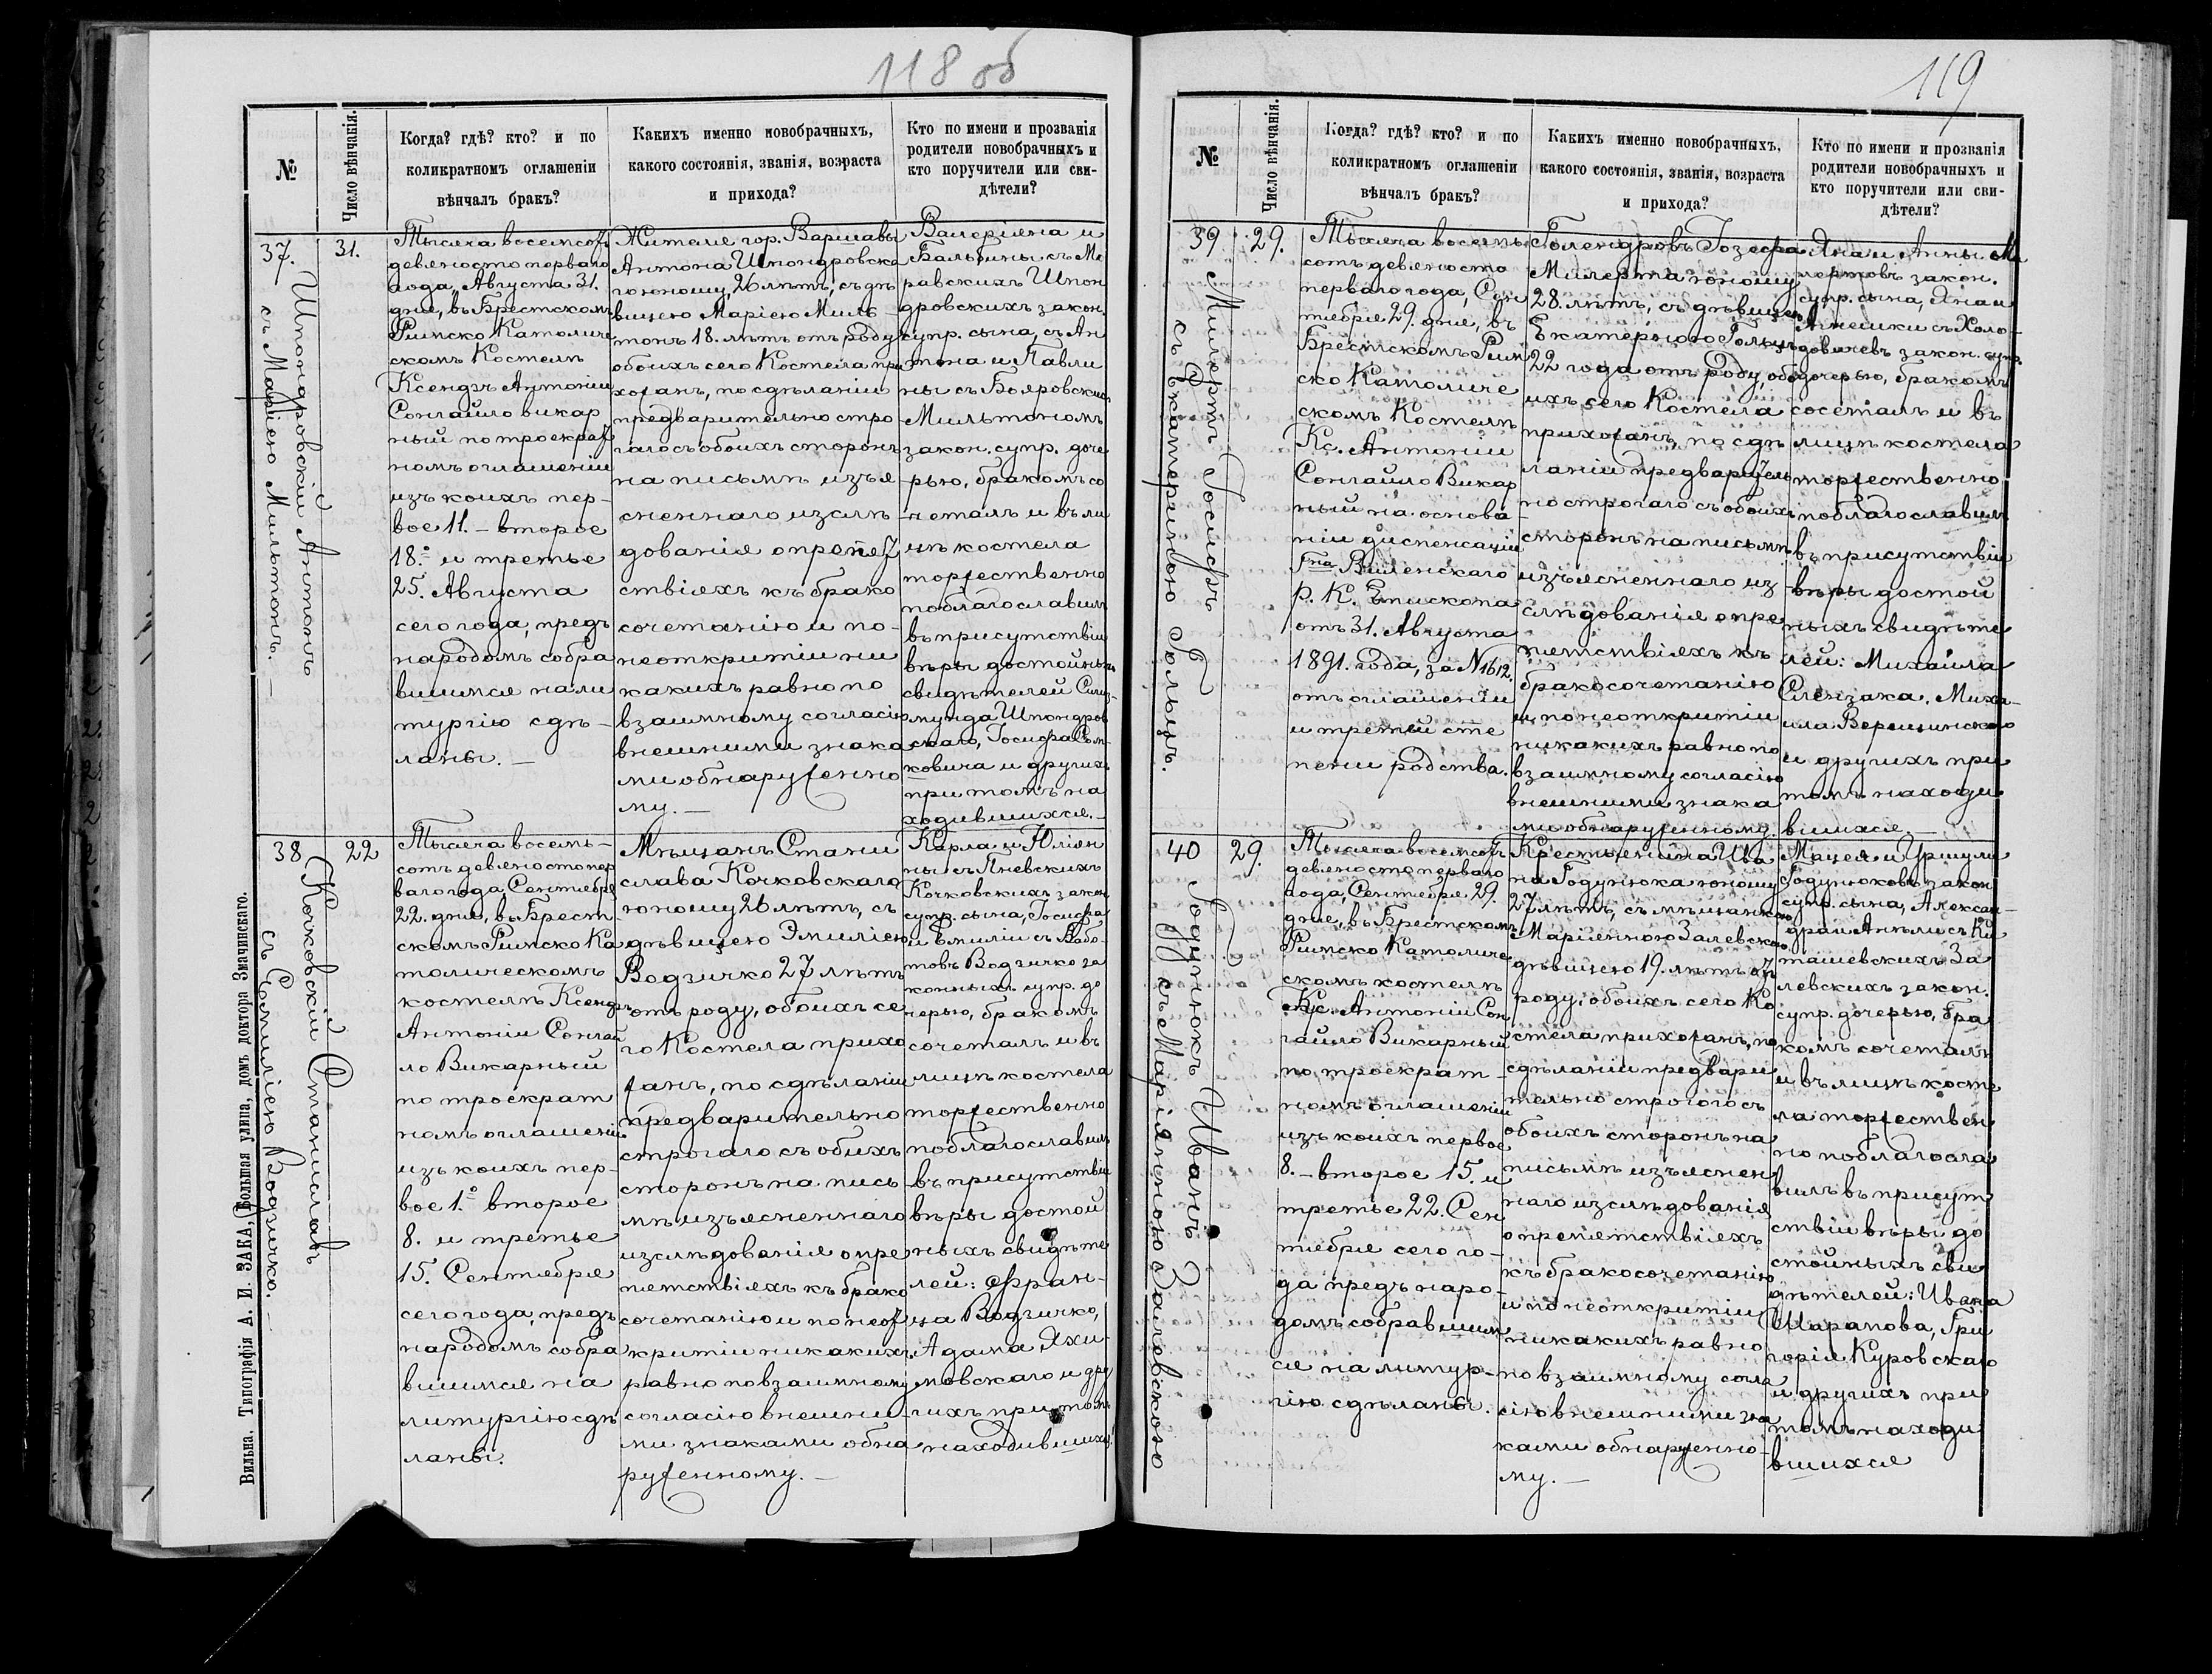 118 об
№
Число вѣнчанія.
Когда? гдѣ? кто? и по
коликратномъ оглашеніи
вѣнчалъ бракъ?
Какихъ именно новобрачныхъ,
какого состоянія, званія, возраста
и прихода?
Кто по имени и прозванія
родители новобрачныхъ и
кто поручители или сви-
дѣтели?
37.
Шпондровскій Антонъ
съ Маріею Мильтонъ. —
31.
Тысяча восемсотъ
девяносто перваго
года, Августа 31.
дня, въ Брестскомъ
Римско Католиче
скомъ Костелѣ
Ксендзъ Антоній
Сонгайло викар
ный по троекрат
номъ оглашеніи
изъ коихъ пер-
вое 11. – второе
18.º и третье
25. Августа
сего года, предъ
народомъ собра
вшимся на ли
тургію сдѣ-
ланы. —
Жителя гор. Варшавы
Антона Шпондровска
го юношу, 26 лѣтъ, съ дѣ
вицею Маріею Миль-
тонъ 18. лѣтъ отъ роду
обоихъ сего Костела при
хожанъ, по сдѣланіи
предварительно стро
гаго съ обоихъ сторонъ
на письмѣ изъя
сненнаго изслѣ
дованія о препят
ствіяхъ къ брако
сочетанію и по-
неоткритіи ни
какихъ равно по
взаимному согласію
внешними знака
ми обнаруженно
му. —
Валеріяна и
Бальбины съ Мо
равскихъ Шпон
дровскихъ закон.
супр. сына, съ Ан
тона и Павли
ны съ Бояровскихъ
Мильтономъ
закон. супр. доче
рью, бракомъ со
четалъ и въ ли
цѣ костела
торжественно
поблагославилъ
въ присутствіи
вѣры достойныхъ
свидѣтелей Сигиз-
мунда Шпондров
скаго, Іосифа
ковича и другихъ
при томъ на
ходившихся. —
38
Кочковскій Станиславъ
съ Емиліею Водзичко. —
22
Тысяча восемь-
сотъ девяносто пер
ваго года, Сентября
22. дня, въ Брест
скомъ Римско Ка
толическомъ
костелѣ Ксендзъ
Антоній Сонгай
ло Викарный
по троекрат
номъ оглашеніи
изъ коихъ пер-
вое 1.º второе
8. и третье
15. Сентября
сего года, предъ
народомъ собра
вшимся на
литургію сдѣ
ланы.
Мѣщанъ Стани
слава Кочковскаго
юношу 26 лѣтъ, съ
дѣвицею Эмиліею
Водзичко 27 лѣтъ
отъ роду, обоихъ се
го Костела прихо
жанъ, по сдѣланіи
предварительно
строгаго съ обихъ
сторонъ на пись
мѣ изъясненнаго
изслѣдованія о пре
пятствіяхъ къ брако
сочетанію и по неот
критіи никакихъ,
равно по взаимному
согласію внешни-
ми знаками обна
руженному. —
Карла и Юліян
ны съ Яневскихъ
Кочковскихъ закон
супр. сына, Іосифа
и Емиліи съ
товъ Водзичко за
конныхъ супр. до
черью, бракомъ
сочеталъ и въ
лицѣ костела
торжественно
поблагославилъ
въ присутствіи
вѣры достой
ныхъ свидѣте
лей: Фран-
ца Водзичко,
Адама Яхи-
мовскаго и дру
гихъ при томъ
находившихся.
Вильна. Типографія А. И. ЗАКА, Большая улица, домъ доктора Змачинскаго.
119
№
Число вѣнчанія.
Когда? гдѣ? кто? и по
коликратномъ оглашеніи
вѣнчалъ бракъ?
Какихъ именно новобрачныхъ,
какого состоянія, званія, возраста
и прихода?
Кто по имени и прозванія
родители новобрачныхъ и
кто поручители или сви-
дѣтели?
39
Милертъ Іосифъ
съ Екатериною Гольцъ.
29.
Тысяча восемь
сотъ девяносто
перваго года, Сен
тября 29. дня, въ
Брестскомъ Рим
ско Католиче
скомъ Костелѣ
Кс. Антоній
Сонгайло Викар
ный на основа
ніи диспенсаціи
Гна Виленскаго
Р. К. Епископа
отъ 31. Августа
1891. года, за N 1612.
отъ оглашеніи
и третьей сте
пени родства.
Голендровъ Іозефа
Милерта юношу
28. лѣтъ, съ дѣвицею
Екатериною Гольцъ
22 года отъ роду, обо
ихъ сего Костела
прихожанъ, по сдѣ
ланіи предваритель
но строгаго съ обоихъ
сторонъ на письмѣ
изъясненнаго из
слѣдованія о пре
пятствіяхъ къ
бракосочетанію
и по неоткритіи
никакихъ равно по
взаимному согласію
внешними знака
ми обнаруженному.
Яна и Анны Ми
лертовъ закон.
супр. сына, Яна и
Агнешки съ Холо-
довичевъ закон. супр.
дочерью, бракомъ
сосеталъ и въ
лицѣ костела
торжественно
поблагославилъ
въ присутствіи
вѣры достой
ныхъ свидѣте
лей: Михаила
Слензака, Миха-
ила Верещинскаго
и другихъ при
томъ находи
вшихся. —
40
Годунюкъ Иванъ
съ Маріянною Залевскою
29.
Тысяча восемсотъ
девяносто перваго
года, Сентября 29.
дня, въ Брестскомъ
Римско Католиче
скомъ костелѣ
Кс. Антоній Сон
гайло Викарный
по троекрат-
номъ оглашеніи
изъ коихъ первое
8. – второе 15. и
третье 22. Сен
тября сего го-
да предъ наро-
домъ собравшим
ся на литур-
гію сдѣланы.
Крестьянина Ива
на Годунюка юношу
27 лѣтъ, съ мѣщанкою
Маріянною Залевскою
дѣвицею 19. лѣтъ отъ
роду, обоихъ сего Ко
стела прихожанъ, по
сдѣланіи предвари
тельно строгаго съ
обоихъ сторонъ на
письмѣ изъяснен
наго изслѣдованія
о препятствіяхъ
къ бракосочетанію
и по неоткритіи
никакихъ равно
по взаимному согла
сію внешними зна
ками обнаруженно-
му. —
Мацея и Уршули
Годунюковъ закон
супр. сына, Алексан-
дра и Анѣли съ Ки
ташевскихъ За
левскихъ закон.
супр. дочерью, бра
комъ сочеталъ
и въ лицѣ косте
ла торжествен
но поблагосла
вилъ въ присут
ствіи вѣры до
стойныхъ сви
дѣтелей: Ивана
Шарапова, Гри
горія Куровскаго
и другихъ при
томъ находи
вшихся